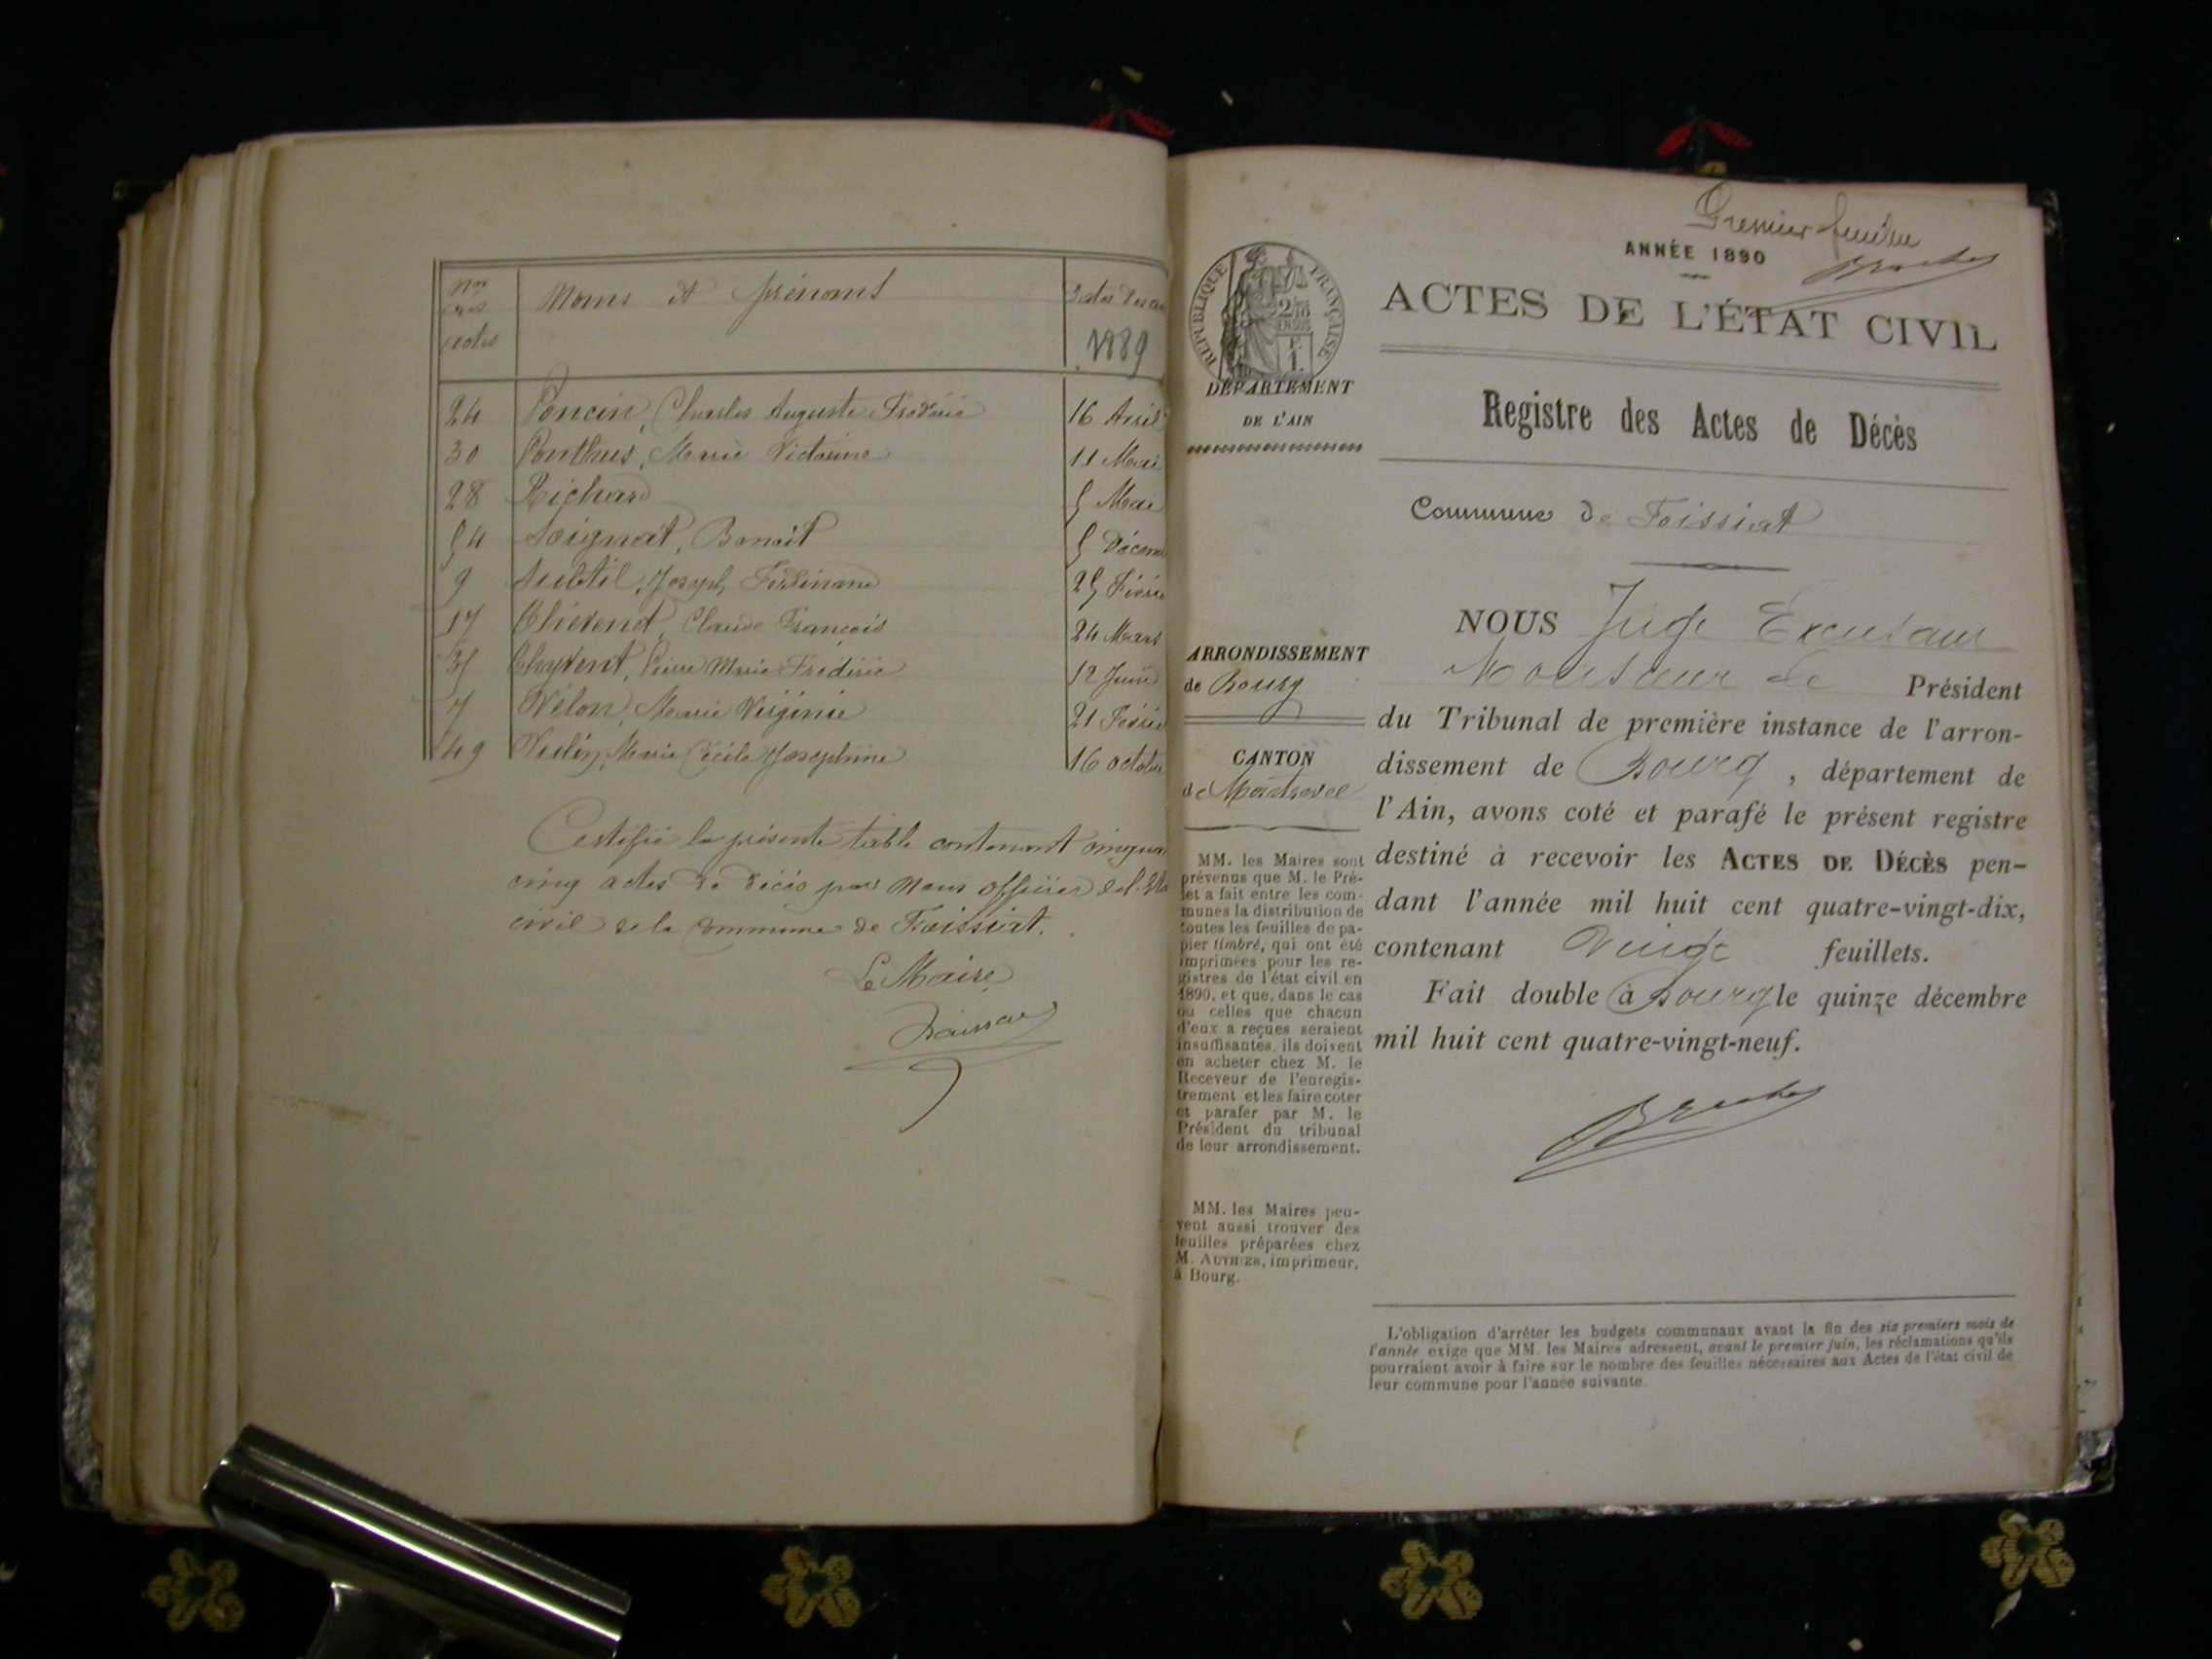 Nos
des
actes
Noms et prénoms
Dates des
1889
24 Poncin, Charles Auguste Frédéric 16 Avril
30 Ponthus, Marie Victorine 11 Mai
28 Richard 5 Mai
54 Soignat, Benoit 5 Décem
9 Subtil, Joseph Ferdinand 25 Févrie
17 Thévenet, Claude François 24 Mars
35 Pierre Marie Frédéric 12 Juin
7 Vélon, Marie Virginie 21 Févrie
49 Marie Cécile Joséphine 16 octobre
Certifié la présente table contenant cinquan
cinq actes de décès par Nous officier de l'Eta
civil de la commune de Foissiat.
Le Maire
Premier feuillet
ANNÉE 1890
ACTES DE L'ÉTAT CIVIL
Registre des Actes de Décès
Commune de Foissiat
RÉPUBLIQUE FRANÇAISE
2/10
EN SUS
F.
1.
DÉPARTEMENT
DE L'AIN
ARRONDISSEMENT
de Bourg
CANTON
de Montrevel
MM. les Maires sont
prévenus que M. le Pré-
fet a fait entre les com-
munes la distribution de
toutes les feuilles de pa-
pier timbré, qui ont été
imprimées pour les re-
gistres de l'état civil en
1890, et que, dans le cas
où celles que chacun
d'eux a reçues seraient
insuffisantes, ils doivent
en acheter chez M. le
Receveur de l'enregis-
trement et les faire coter
et parafer par M. le
Président du tribunal
de leur arrondissement.
MM. les Maires peu-
vent aussi trouver des
feuilles préparées chez
M. AUTHIER, imprimeur,
à Bourg.
NOUS Juge
Monsieur le Président
du Tribunal de première instance de l'arron-
dissement de Bourg, département de
l'Ain, avons coté et parafé le présent registre
destiné à recevoir les ACTES DE DÉCÈS pen-
dant l'année mil huit cent quatre-vingt-dix,
contenant Vingt feuillets.
Fait double à Bourg le quinze décembre
mil huit cent quatre-vingt-neuf.
L'obligation d'arrêter les budgets communaux avant la fin des six premiers mois de
l'année exige que MM. les Maires adressent, avant le premier juin, les réclamations qu'ils
pourraient avoir à faire sur le nombre des feuilles nécessaires aux Actes de l'état civil de
leur commune pour l'année suivante.